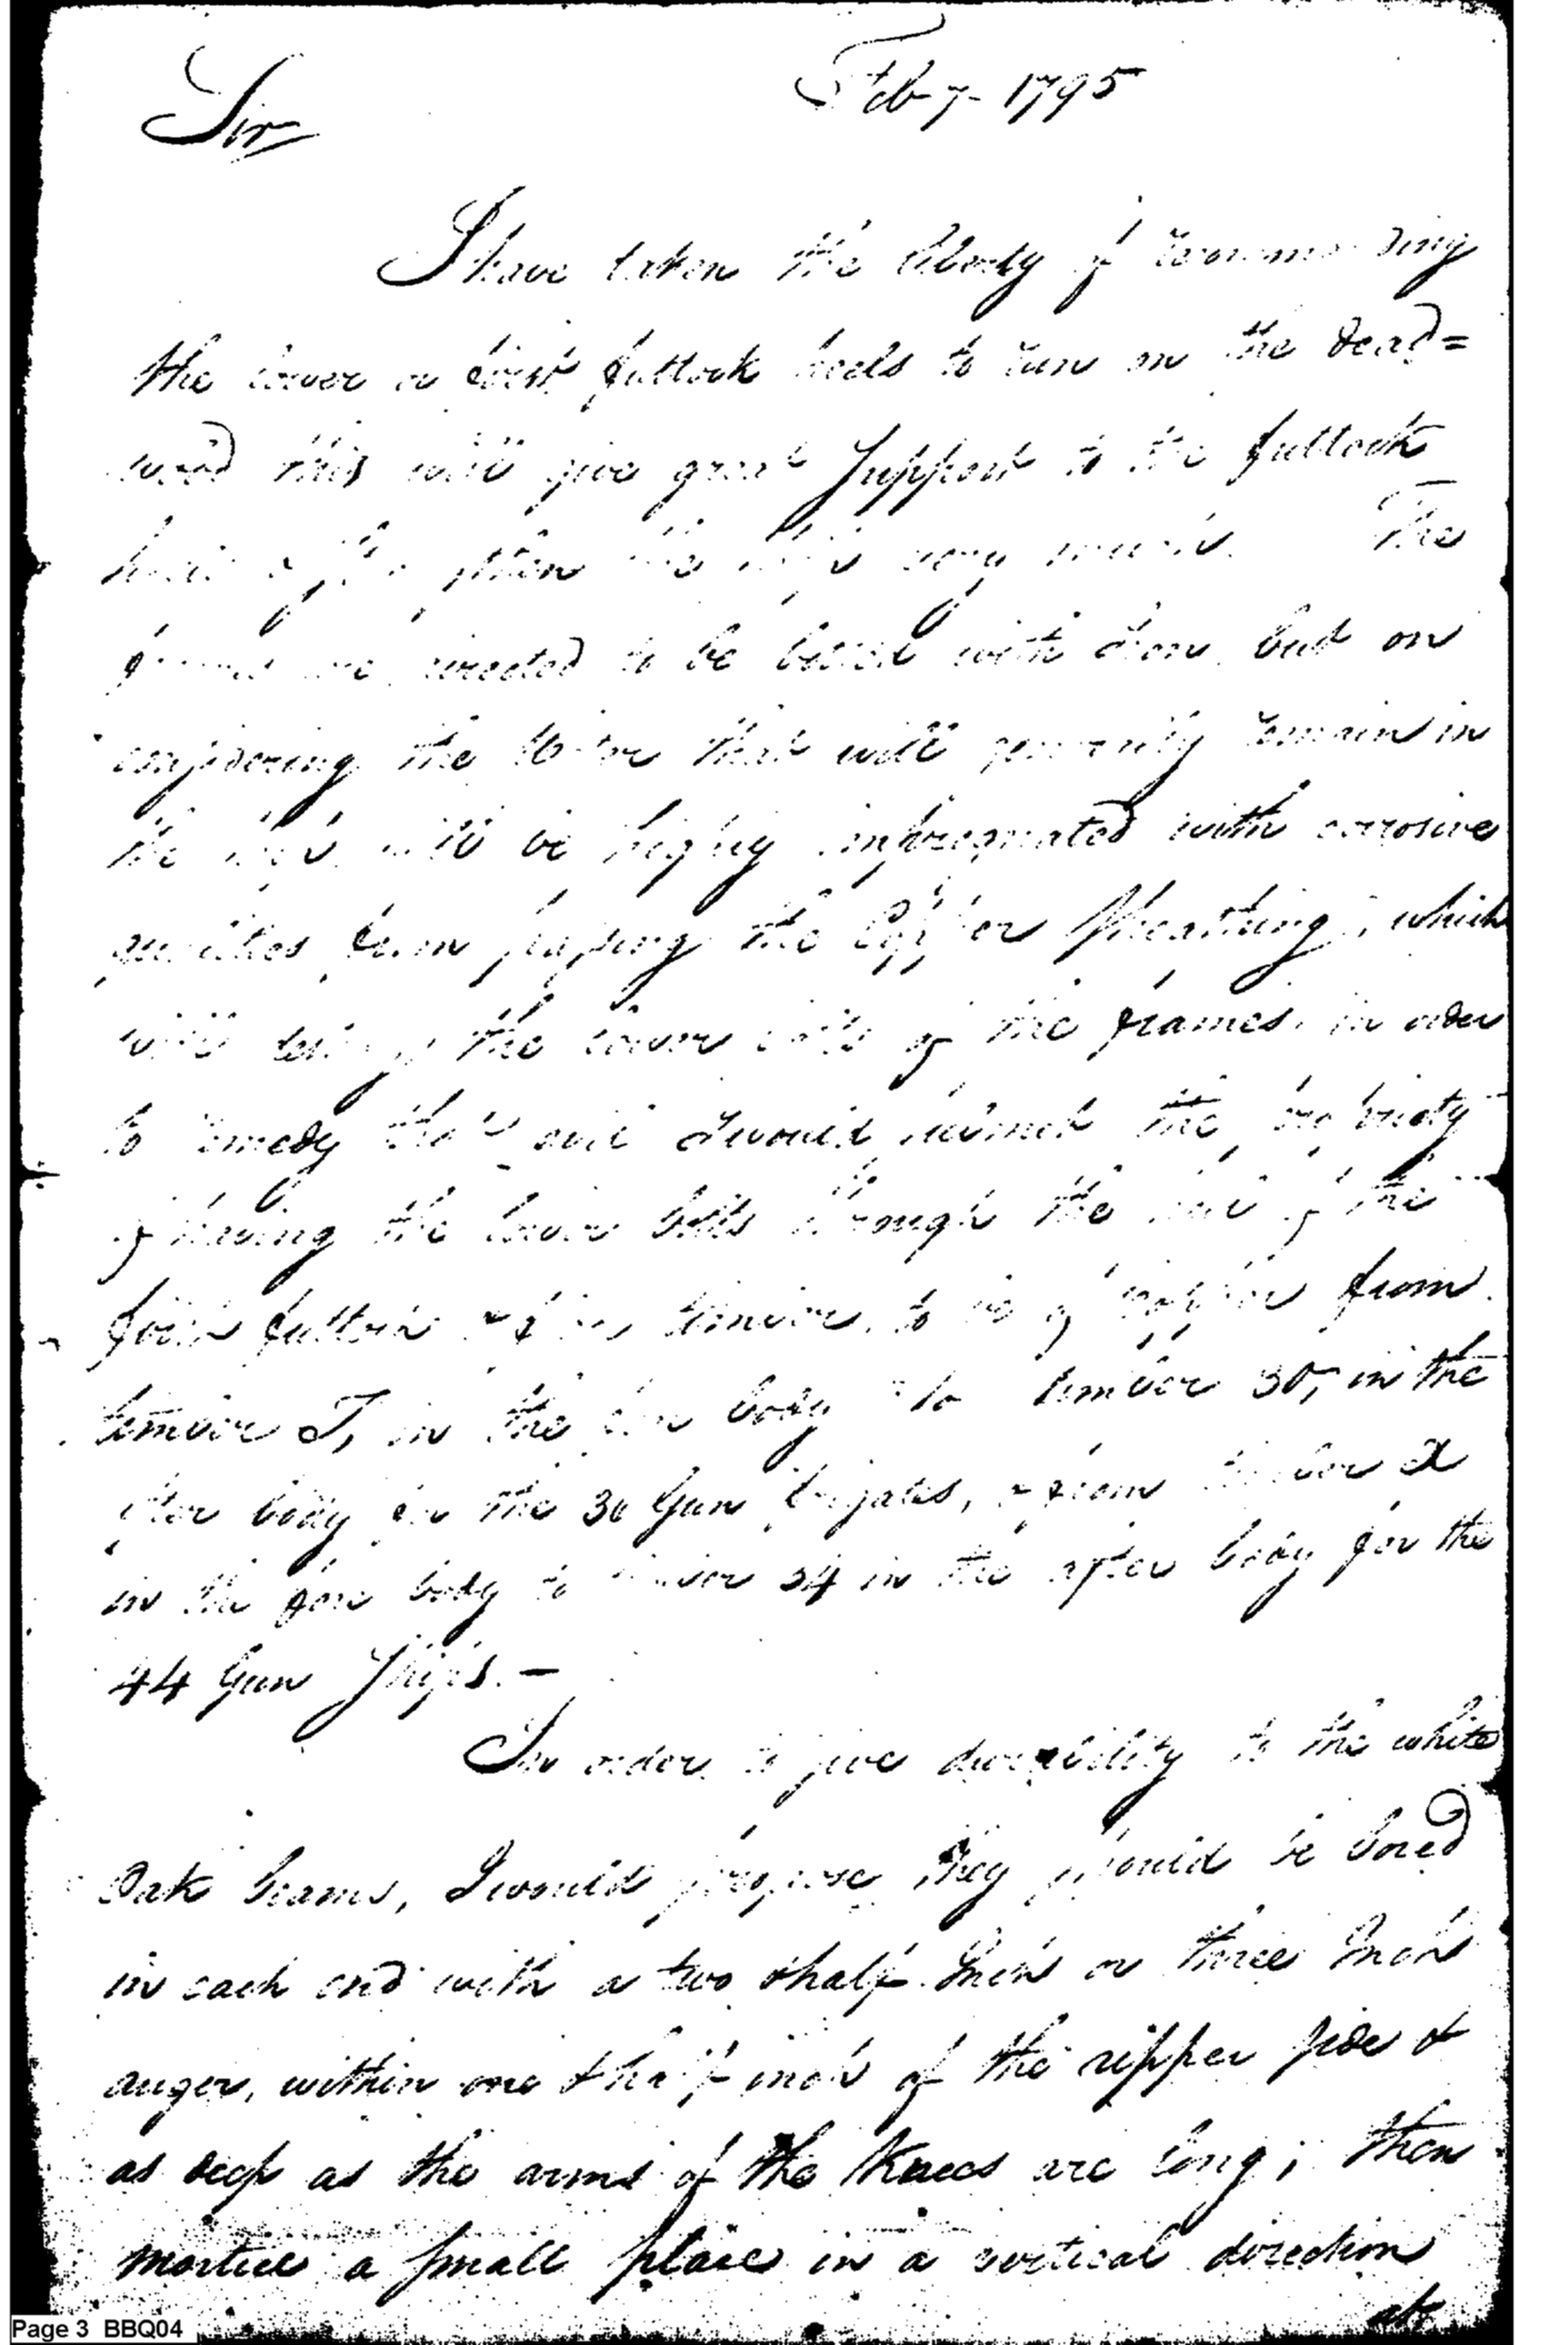 Feb 7- 1795
Sir
I have taken the liberty of recommending
the lower or first futtock heels to run on the dead=
wood this will give great Support to the futtock
& strengthen the Ship very much. The
frames are directed to be bolted with Iron but on
considering the Water that will generally remain in
the Ship will be highly impregnated with corrosive
qualities from passing the Copper Sheathing, which
will destroy the lower bolts of the frames. in order
to remedy that evil I would submit the propriety
of having the lower bolts through the heel of the
first futtock & floor timber, to be of copper from
timber T, in the fore body to timber 30, in the
after body for the 36 Gun frigates, & from timber X
in the fore body to timber 34 in the after body for the
44 Gun Ships. —
In order to give durability to the white
Oak beams, I would propose they should be bored
in each end with a two & half Inch or three Inch
auger, within one & half inch of the upper side &
as deep as the arms of the Knees are long; then
mortice a small place in a vertical direction
at
Page 3 BBQ04